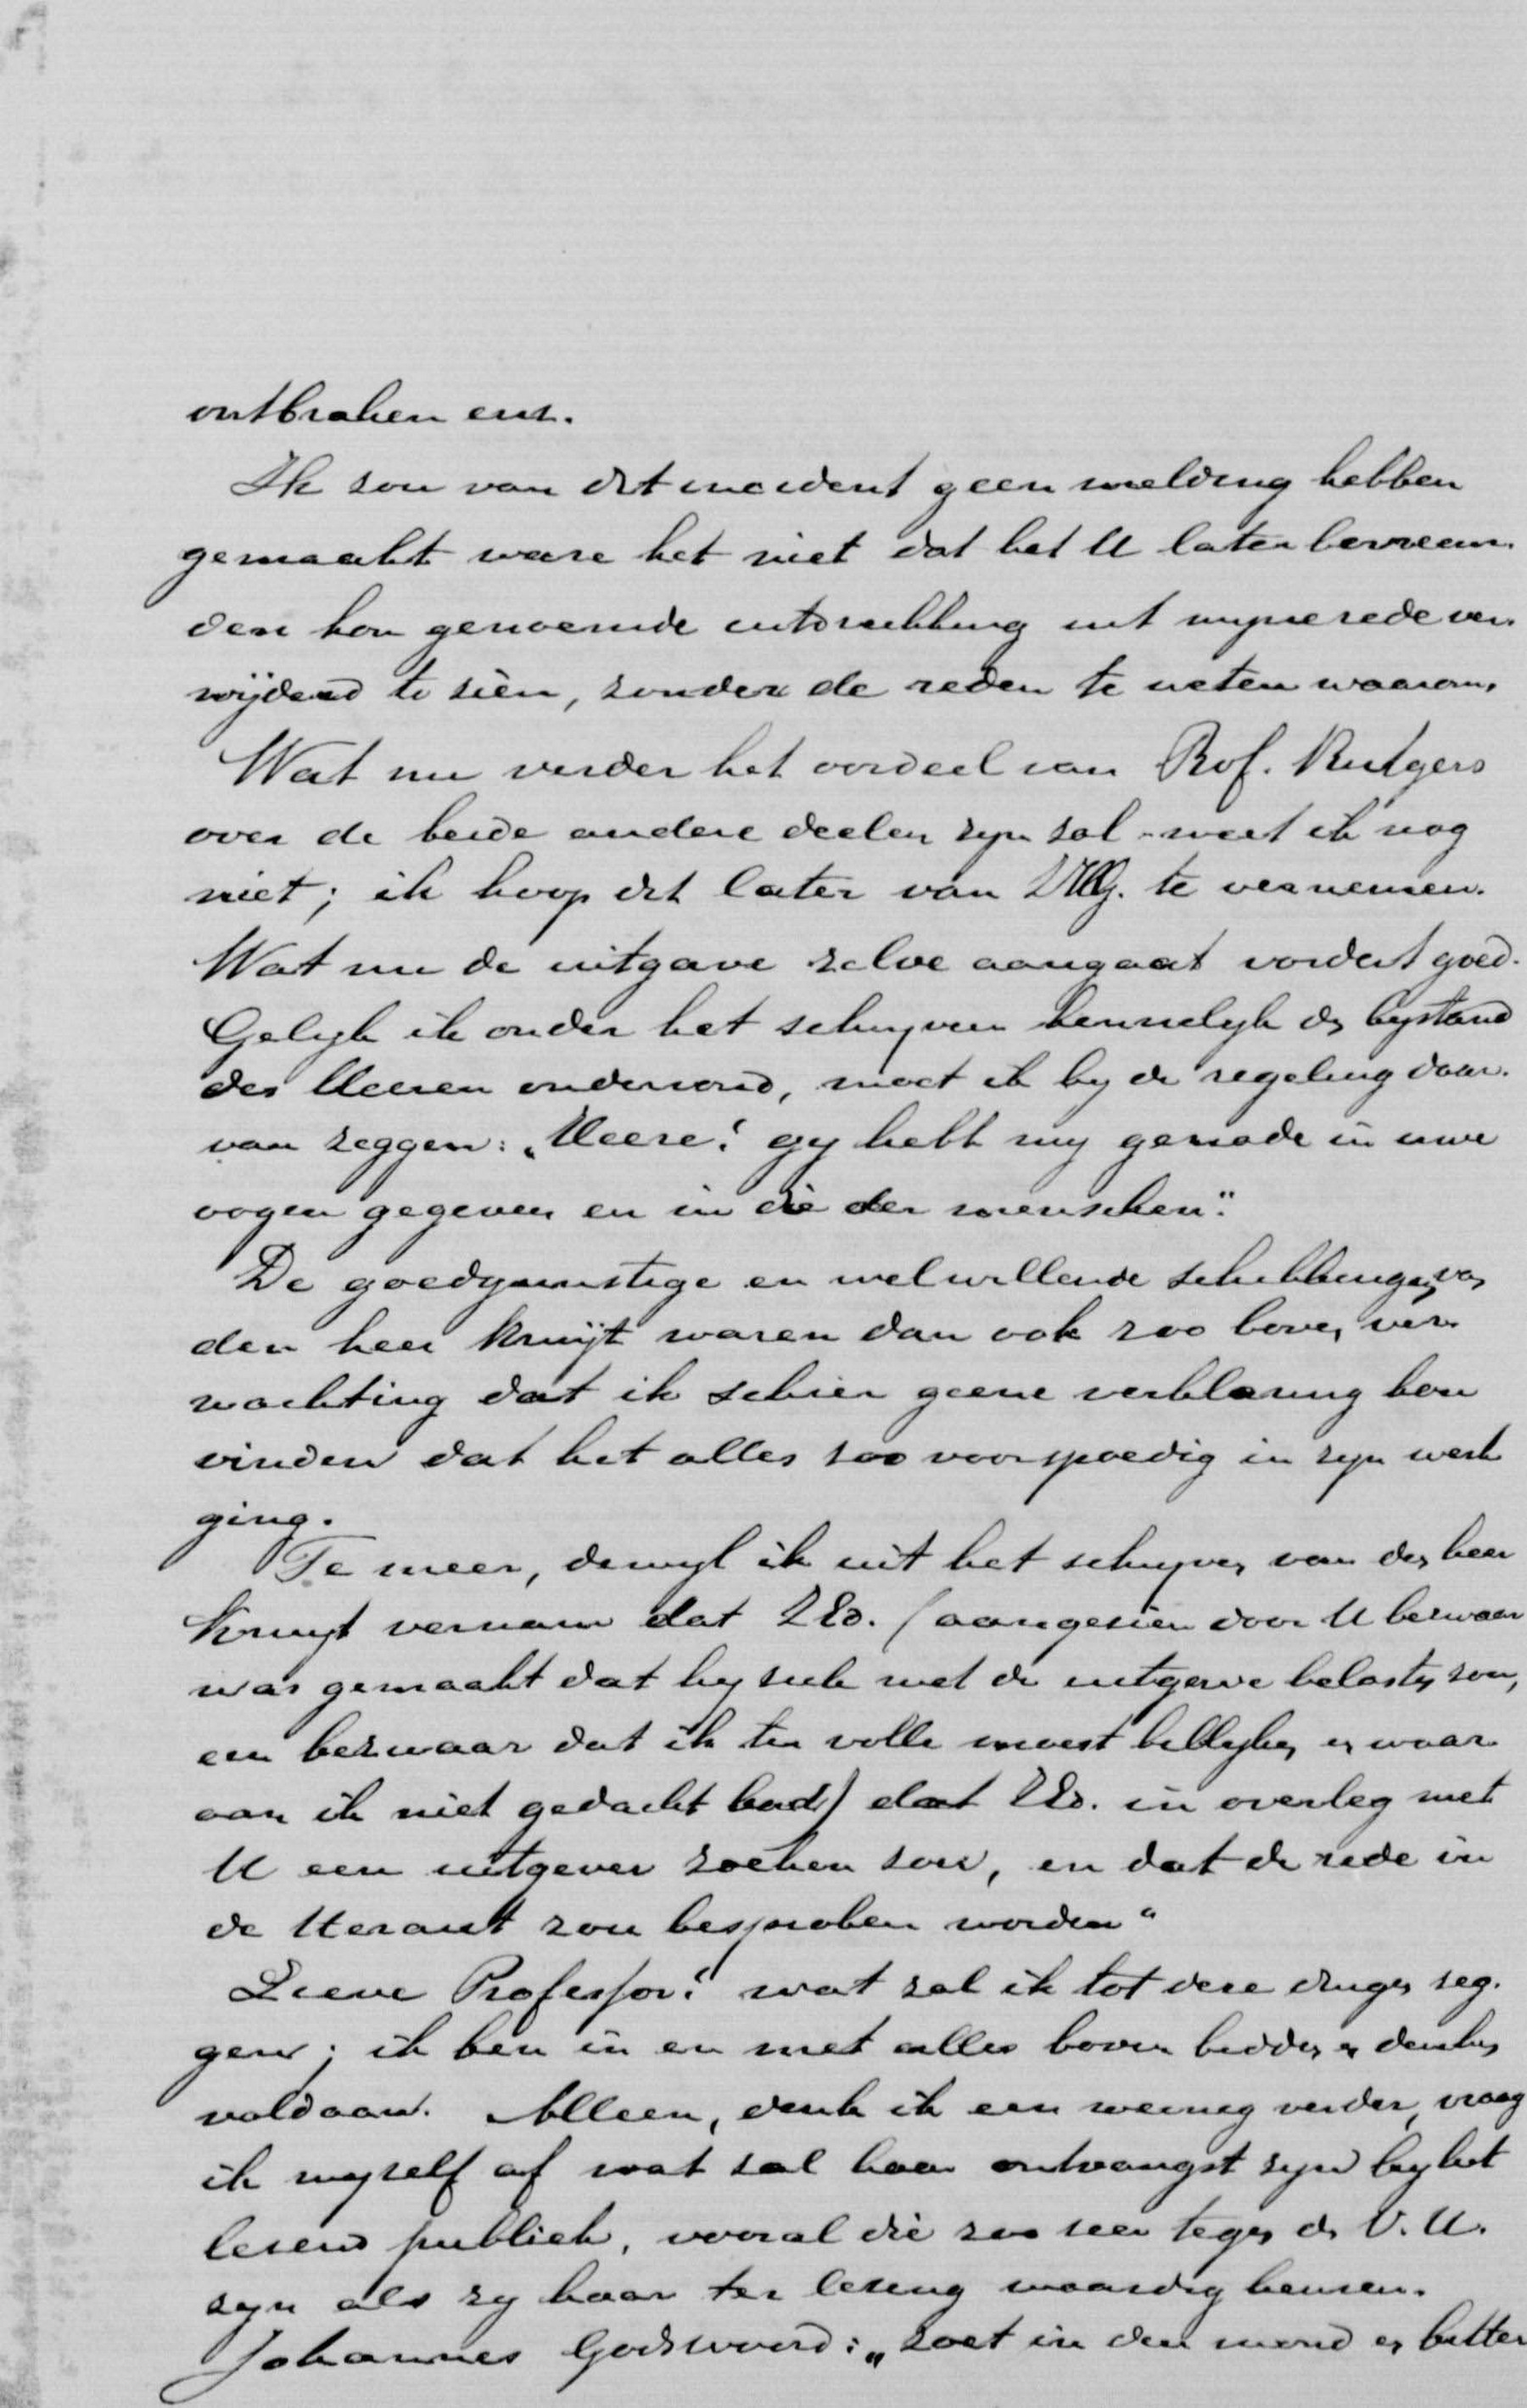 ontbraken enz.
Ik zou van dit incident geen melding hebben
gemaakt ware het niet dat het U later bevreem-
den kon genoemde uitdrukking uit mijne rede ver-
wijderd te zien, zonder de reden te weten waarom.
Wat nu verder het oordeel van Prof. Rutgers
over de beide andere deelen zyn zal weet ik nog
niet; ik hoop dit later van te vernemen.
Wat nu de uitgave zelve aangaat vordert goed.
Gelyk ik onder het schryven kennelyk den bystand
des Heeren ondervond, moet ik by de regeling daar-
van zeggen: „Heere! gy hebt my genade in uwe
oogen gegeven en in die der menschen."
De goedgunstige en welwillende schikkingen van
den heer Kruijt waren dan ook zoo boven ver-
wachting dat ik schier geene verklaring kon
vinden dat het alles zoo voorspoedig in zyn werk
ging.
Te meer, dewyl ik uit het schryven van den heer
Kruyt vernam dat ZEd. (aangezien door U bezwaar
was gemaakt dat hy zich met de uitgave belasten zou,
een bezwaar dat ik ten volle moest billyken en waar-
aan ik niet gedacht had) dat ZEd. in overleg met
U een uitgever zoeken zou, en dat de rede in
de Heraut zou besproken worden"
Lieve Professor! wat zal ik tot deze dingen zeg-
gen; ik ben in en met alles boven bidden en denken
voldaan. Alleen, denk ik een weinig verder, vraag
ik myzelf af wat zal haar ontvangst zyn by het
lezend publiek, vooral die zoo zeer tegen de V.U.
zyn als zy haar ter lezing waardig keuren.
Johannes Godswoord: „zoet in den mond en bitter